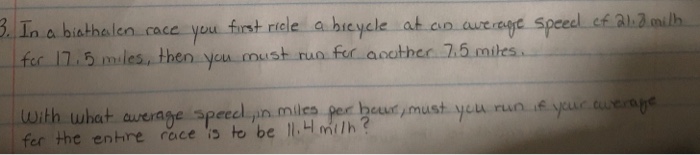 3. In a biathalon race you first ride a bicycle at an average speed of 21.2 mi/h
for 17.5 miles, then you must run for another 7.5 miles.
With what average speed, in miles per hour, must you run if your average
for the entire race is to be 11.4 mi/h?